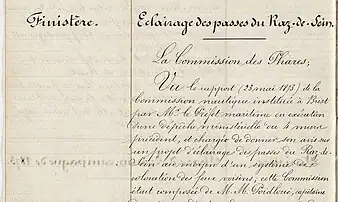 Finistère.
Eclairage des passes du Raz-de-Sein.
La Commission des Phares;
Vu le rapport (23 mai 1875) de la
Commission nautique instituée à Brest
par Mr. le Préfet maritime en exécution
d'une dépêche ministérielle du 4 mars
précédent, et chargée de donner son avis sur
un projet d'éclairage des passes du Raz-de-
Sein au moyen d'un système de
coloration des feux voisins; cette Commission
était composée de M.M. Poidloüe, capitaine